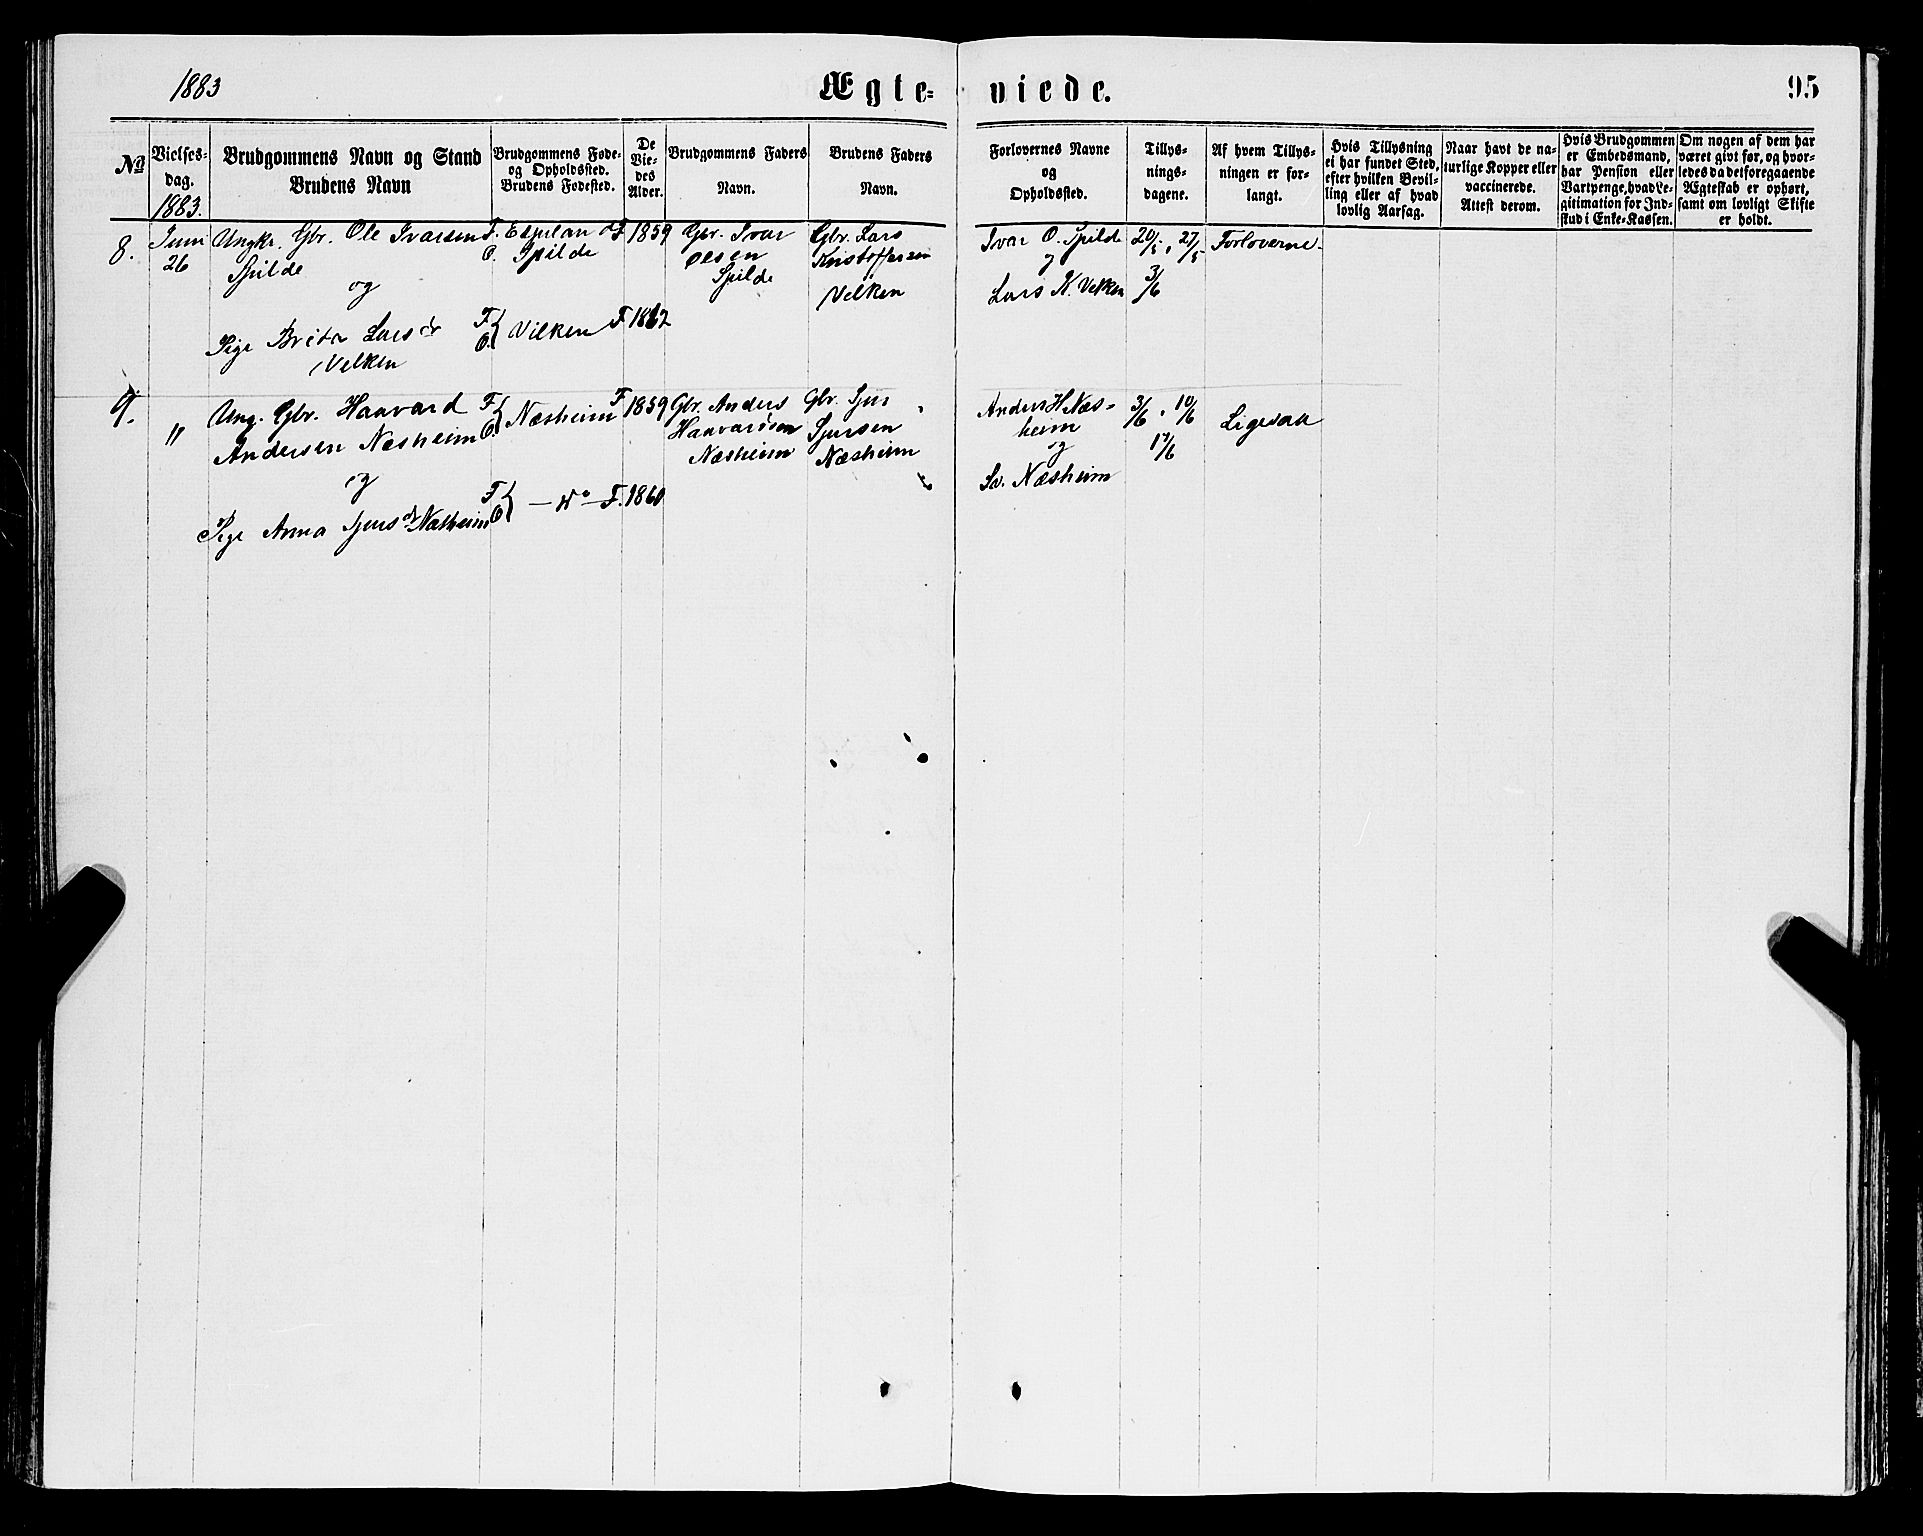 1883
Ægte-
viede.
95
No
Vielses-
dag.
1883.
Brudgommens Navn og Stand
Brudens Navn
Brudgommens Føde-
og Opholdssted.
Brudens Fødested.
De
Vie-
des
Alder.
Brudgommens Faders
Navn.
Brudens Faders
Navn.
Forlovernes Navne
og
Opholdssted.
Tillys-
nings-
dagene.
Af hvem Tillys-
ningen er for-
langt.
Hvis Tillysning
ei har fundet Sted,
efter hvilken Bevil-
ling eller af hvad
lovlig Aarsag.
Naar havt de na-
turlige Kopper eller
vaccinerede.
Attest derom.
Hvis Brudgommen
er Embedsmand,
har Pension eller
Vartpenge, hvad Le-
gitimation for Ind-
skud i Enke-Kassen.
Om nogen af dem har
været givt før, og hvor-
ledes da det foregaaende
Ægteskab er ophørt,
samt om lovligt Skifte
er holdt.
8.
Juni
26
Ungkr. Gbr. Ole Ivarsen
Spilde
og
Pige Brita Larsdr
Velken
F. Espeland
O. Spilde
F. 1859
F. O. Vilken
F. 1862
Gbr. Ivar
Olsen
Spilde
Gbr. Lars
Kristoffersen
Velken
Ivar O. Spilde
og
Lars K. Velken
20/5, 27/5
3/6
Forloverne
9.
"
Ung. Gbr. Haavard
Andersen Næsheim
og
Pige Anna Sjursdr Næsheim
F. O. Næsheim
F. 1859
F. O. — do —
F. 1860
Gbr. Anders
Haavardsen
Næsheim
Gbr. Sjur
Sjursen
Næsheim
Anders H Næs-
heim
og
Næsheim
3/6, 10/6
17/6
Ligesaa